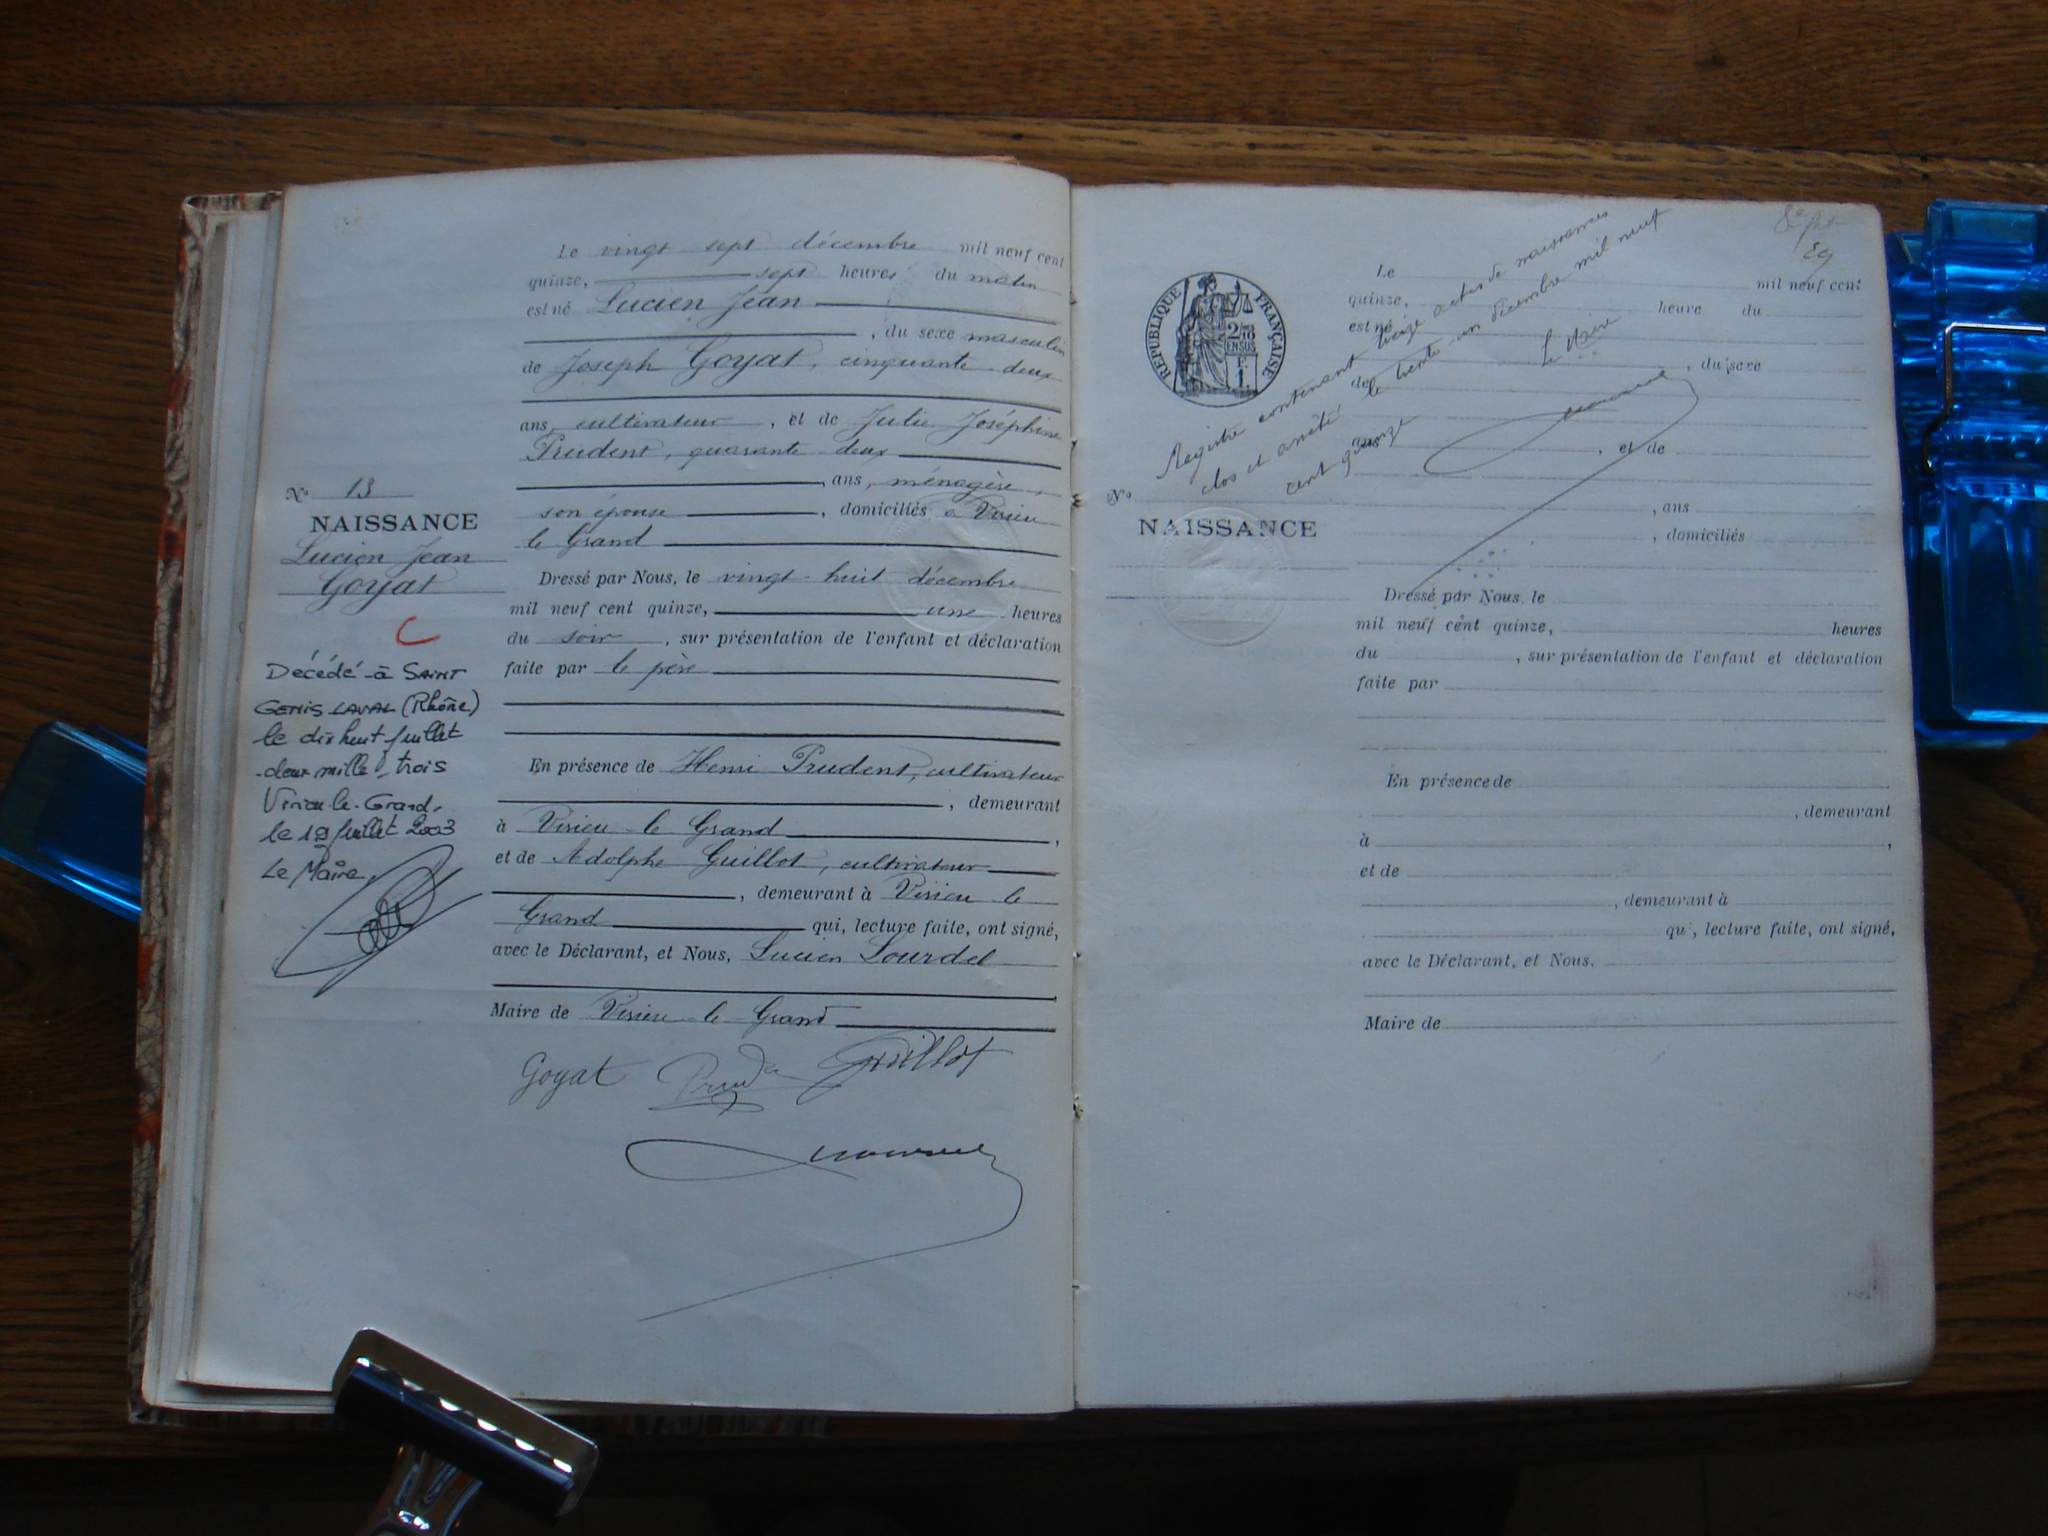 Le vingt sept décembre mil neuf cent
quinze, sept heures du matin
est né Lucien Jean
, du sexe masculin
de Joseph Goyat, cinquante deux
ans, cultivateur, et de Julie Joséphine
Prudent, quarante deux
, ans, ménagère,
son épouse, domiciliés à Virieu
le Grand
Dressé par Nous, le vingt huit décembre
mil neuf cent quinze, une heures
du soir, sur présentation de l'enfant et déclaration
faite par le père
En présence de Henri Prudent, cultivateur
, demeurant
à Virieu le Grand,
et de Adolphe Guillot, cultivateur
, demeurant à Virieu le
Grand qui, lecture faite, ont signé,
avec le Déclarant, et Nous, Lucien Lourdel
Maire de Virieu le Grand
Goyat Guillot
No 13
NAISSANCE
Lucien Jean
Goyat
C
Décédé à SAINT
GENIS LAVAL (Rhône)
le dix huit juillet
deux mille trois
Virieu-le-Grand,
le 19 juillet 2003
Le Maire,
Sept
RÉPUBLIQUE FRANÇAISE
Registre contenant treize actes de naissances
clos et arrêté le trente-un décembre mil neuf
cent quinze
Le Maire
Le mil neuf cent
quinze, heure du
est né
, du sexe
de
ans, et de
, ans
No
NAISSANCE
, domiciliés
Dressé par Nous, le
mil neuf cent quinze, heures
du , sur présentation de l'enfant et déclaration
faite par
En présence de
, demeurant
à ,
et de
, demeurant à
qui, lecture faite, ont signé,
avec le Déclarant, et Nous,
Maire de